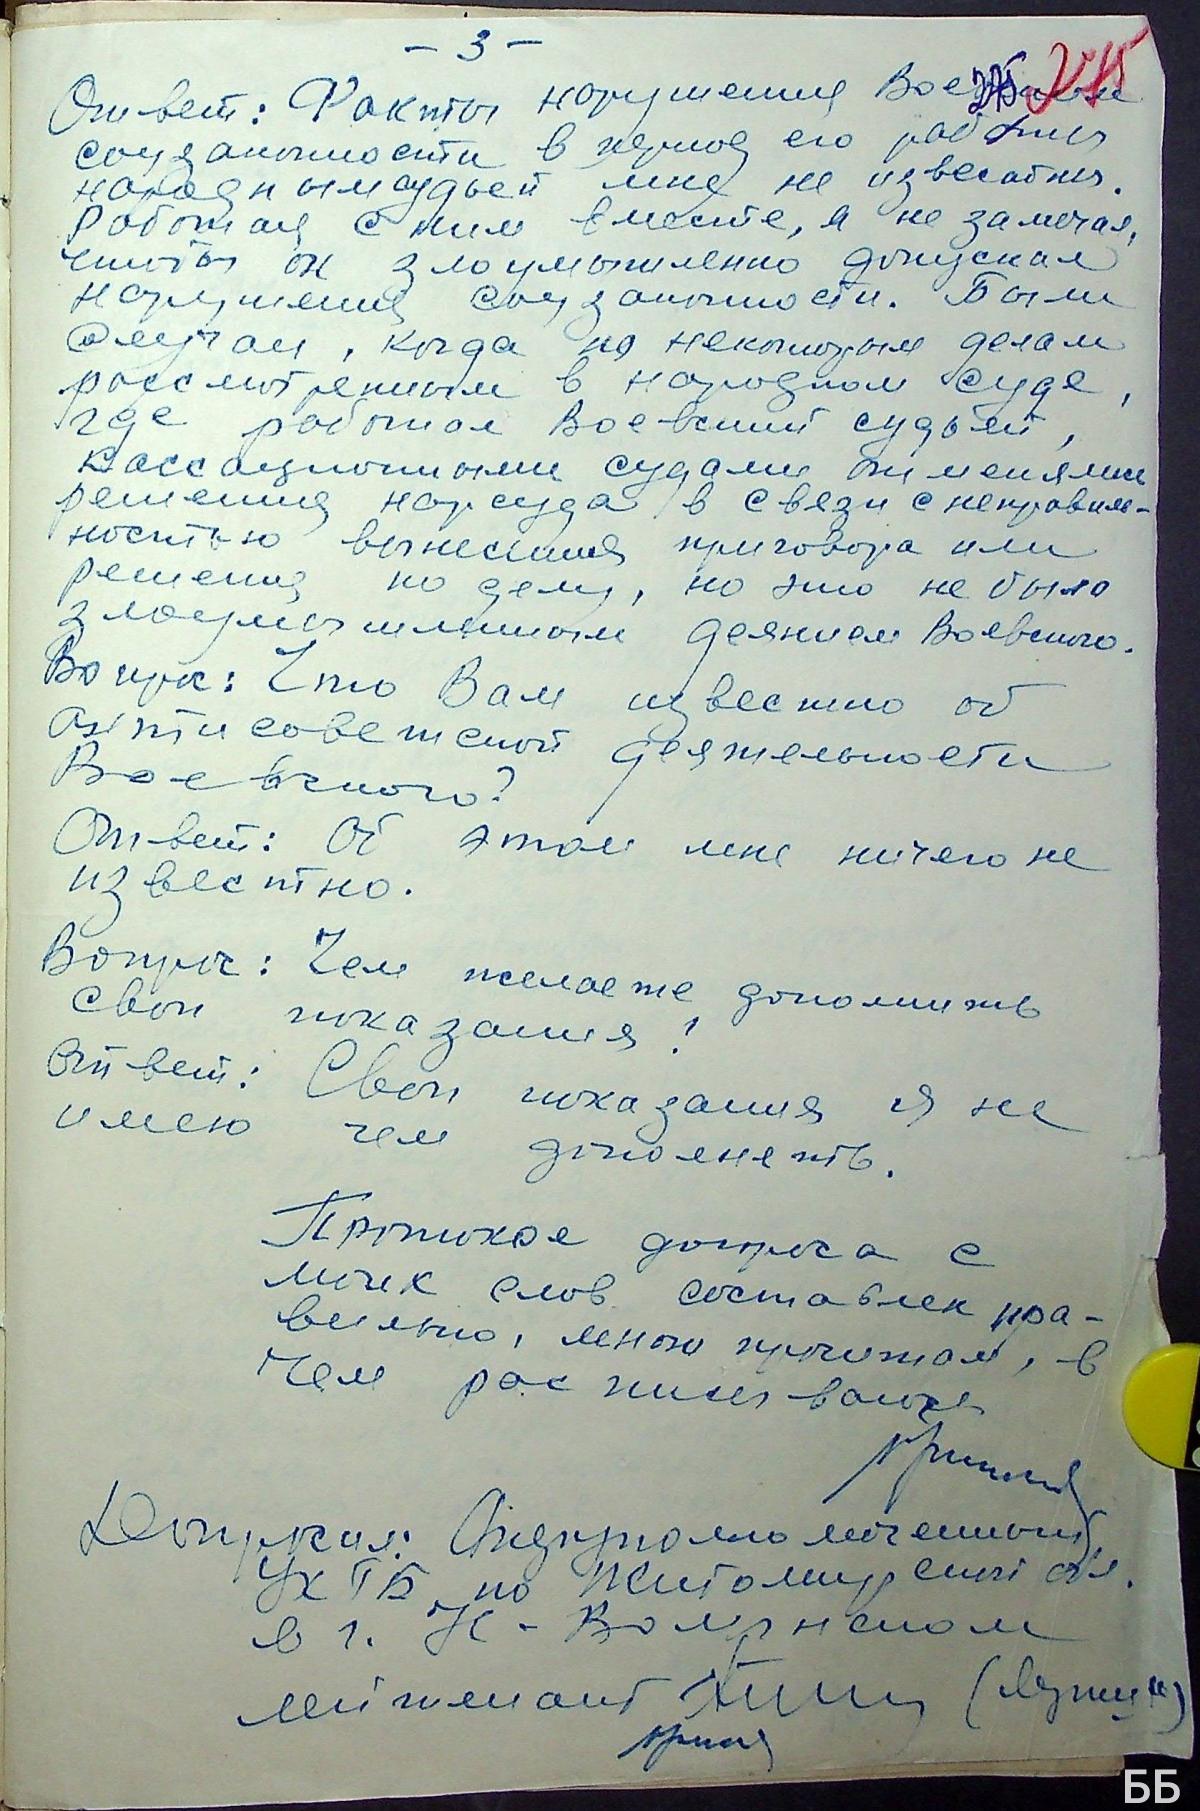 - 3 -
275 215
Ответ: Факты нарушения Воевским
соцзаконности в период его работы
народным судьей мне не известны.
Работая с ним вместе, я не замечал,
чтобы он злоумышленно допускал
нарушения соцзаконности. Были
случаи, когда по некоторым делам
рассмотренным в народном суде,
где работал Воевский судьей,
кассационными судами отменялись
решения нарсуда в связи с неправиль-
ностью вынесения приговора или
решения по делу, но это не было
злоумышленным деянием Воевского.
Вопрос: Что Вам известно об
антисоветской деятельности
Воевского?
Ответ: Об этом мне ничего не
известно.
Вопрос: Чем желаете дополнить
свои показания?
Ответ: Свои показания я не
имею чем дополнять.
Протокол допроса с
моих слов составлен пра-
вильно, мною прочитан, в
чем расписываюсь
Допросил: Оперуполномоченный
УКГБ по Житомирской обл.
в г. Н-Волынском
лейтенант
ББ